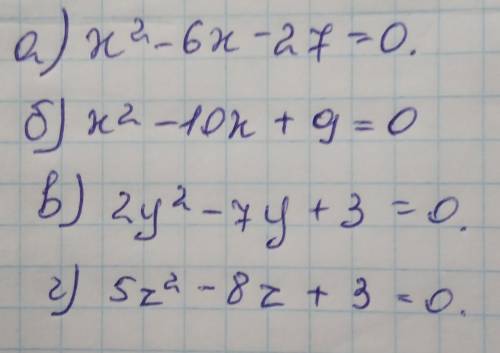 а) x² - 6x - 27 = 0.
б) x² - 10x + 9 = 0
в) 2y² - 7y + 3 = 0.
г) 5z² - 8z + 3 = 0.